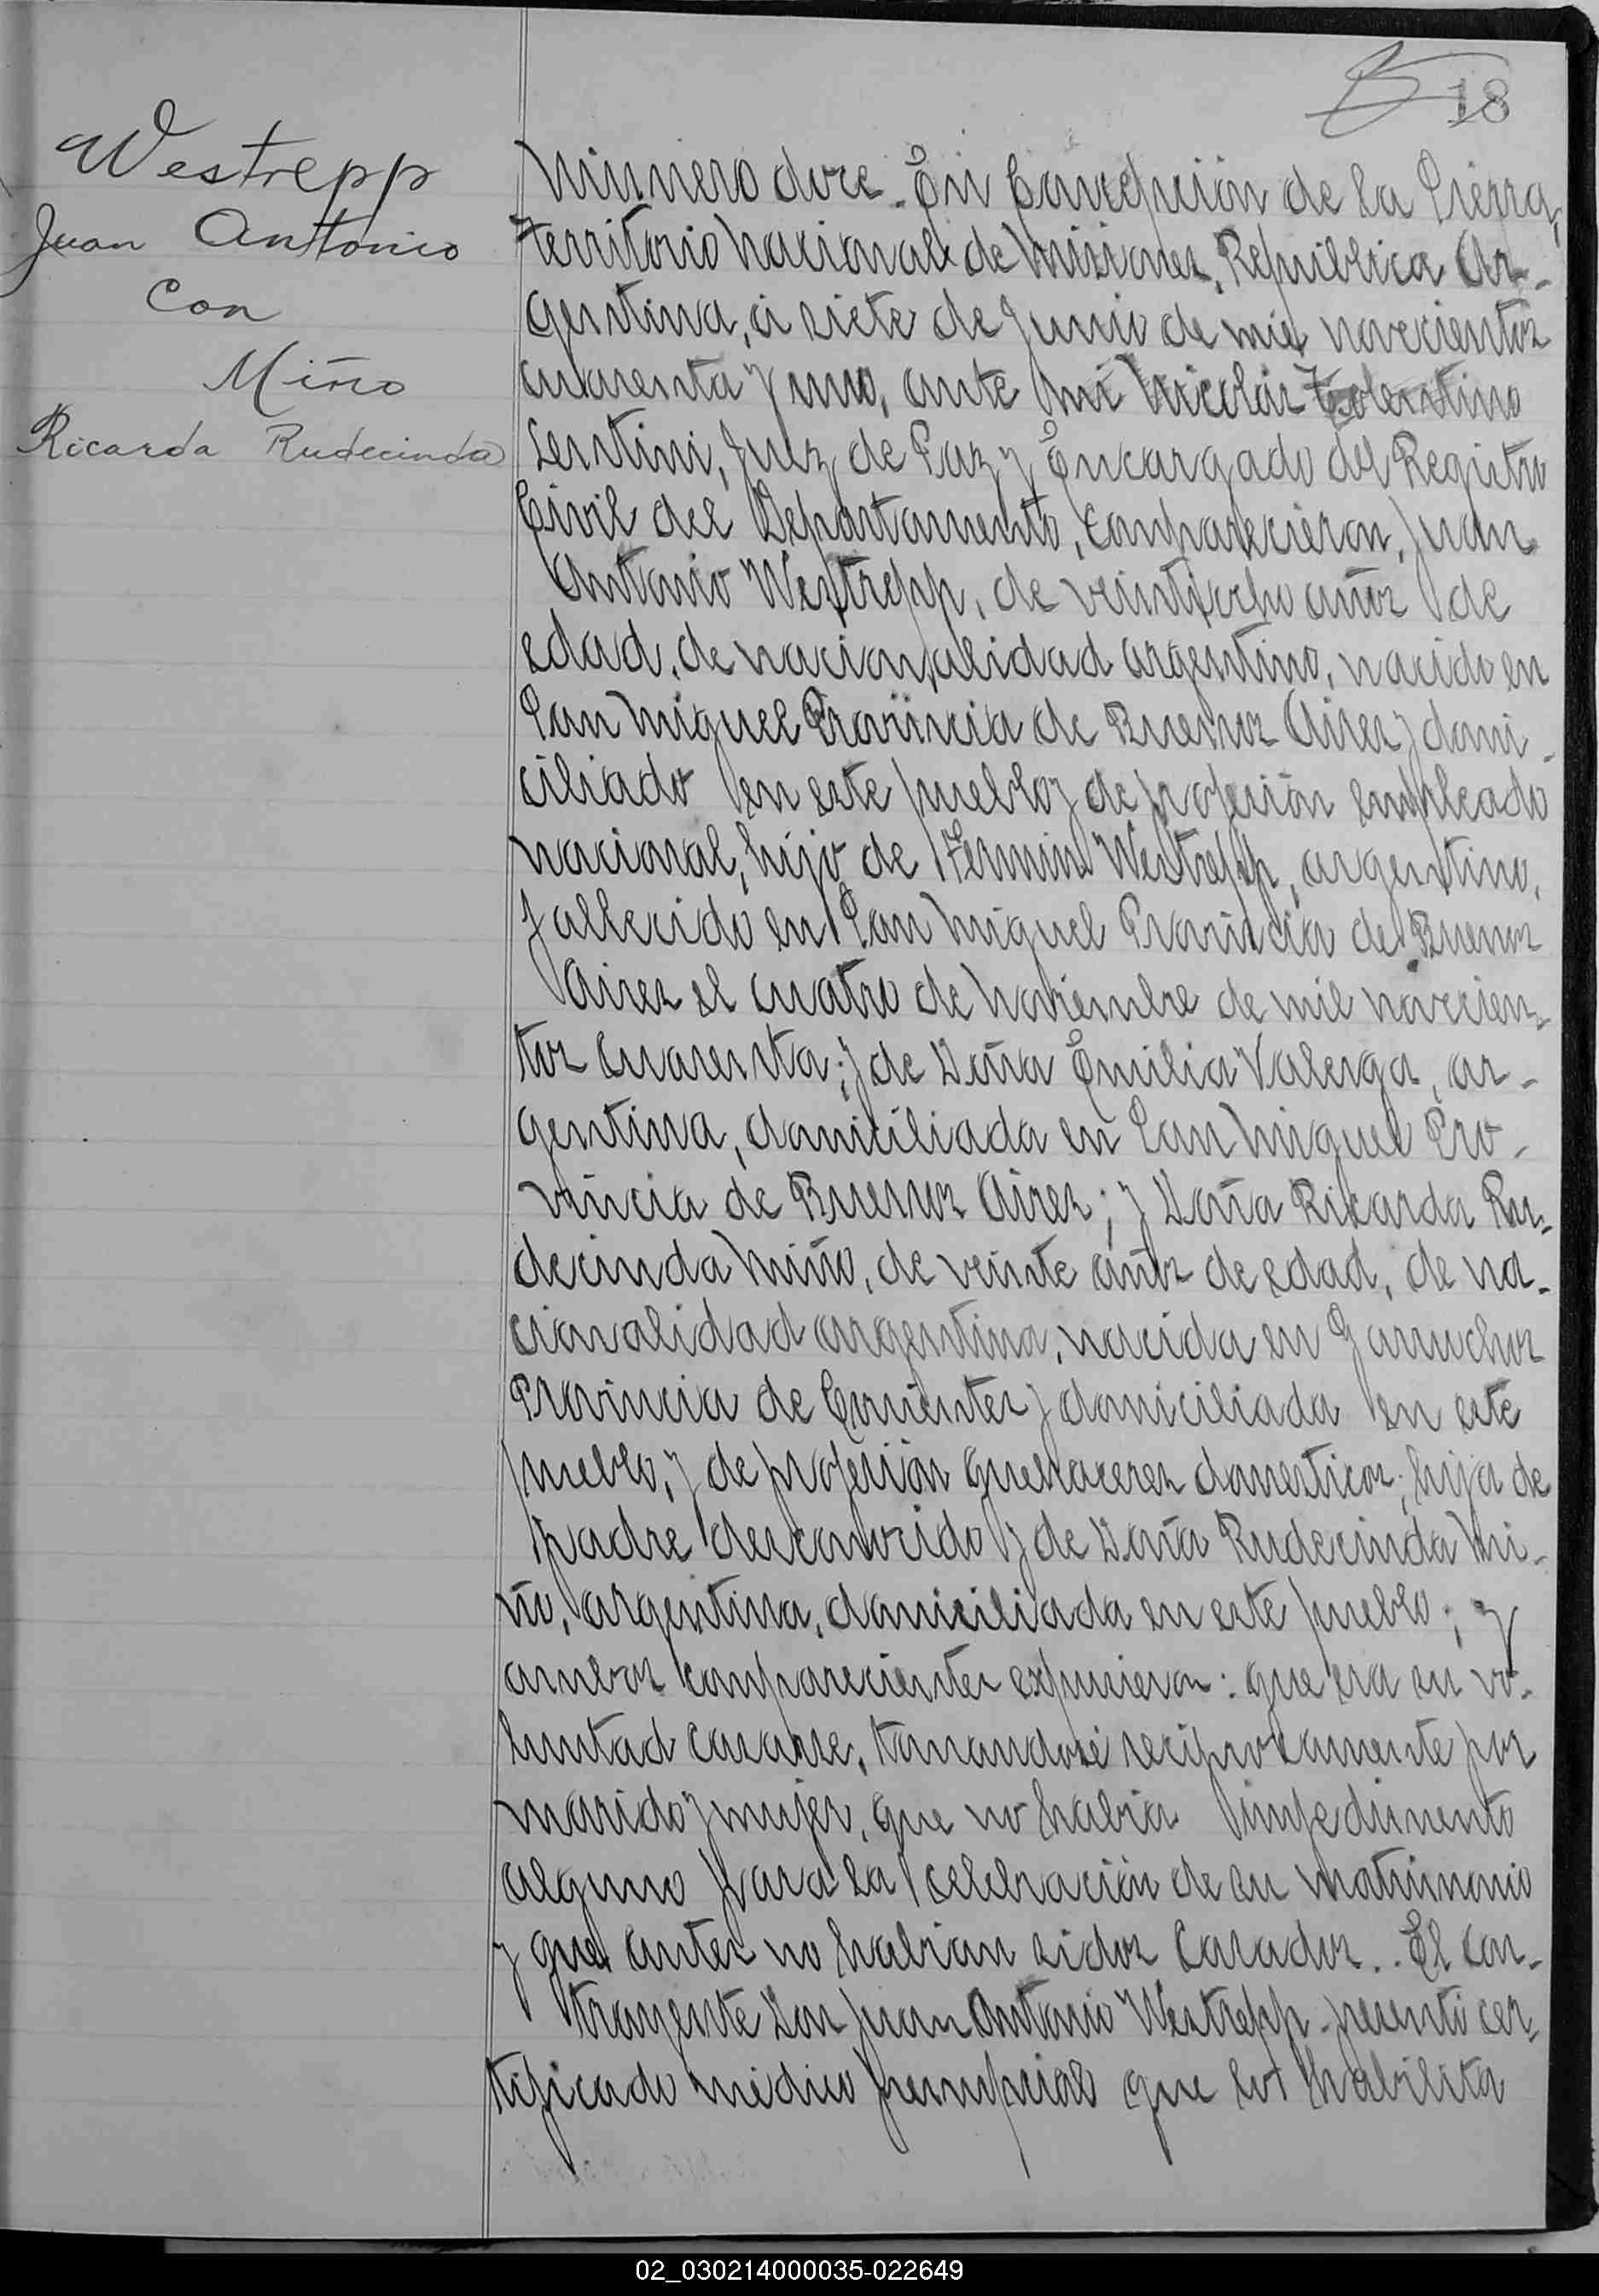 18
Westrepp
Juan Antonio
Con
Miño
Ricarda Rudecinda
Número doce. En Concepción de la Sierra,
territorio nacional de Misiones, República Ar-
gentina, a siete de Junio de mil novecientos
cuarenta y uno, ante mi Nicolás Tolentino
Sentini, Juez de Paz y Encargado del Registro
Civil del Departamento, comparecieron, Juan
Antonio Westrepp, de veintiocho años de
edad, de nacionalidad argentino, nacido en
San Miguel Provincia de Buenos Aires y domi-
ciliado en este pueblo y de profesión empleado
nacional, hijo de Fermin Westrepp, argentino,
fallecido en San Miguel Provincia de Buenos
Aires el cuatro de Noviembre de mil novecien-
tos cuarenta; y de Doña Emilia Valerga, ar-
gentina, domiciliada en San Miguel Pro-
vincia de Buenos Aires; y Doña Ricarda Ru-
decinda Miño, de veinte años de edad, de na-
cionalidad argentina, nacida en Garruchos
Provincia de Corrientes y domiciliada en este
pueblo, y de profesión quehaceres domesticos; hija de
padre desconocido y de Doña Rudecinda Mi-
ño, argentina, domiciliada en este pueblo; y
ambos comparecientes expusieron: que era su vo-
luntad casarse, tomandose reciprocamente por
marido y mujer, que no habia impedimento
alguno para la celebración de su matrimonio
y que antes no habian sidos casados.. El con-
trayente Don Juan Antonio Westrepp - presentó cer-
tificado médico prenupcial que lo habilita
02_030214000035-022649